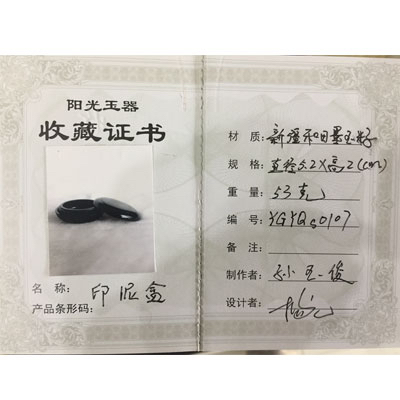 阳光玉器
收藏证书
名 称：印泥盒
产品条形码：
材 质：新疆和田墨玉籽
规 格：直径5.2X高2(cm)
重 量：53克
编 号：YGYQs0107
备 注：
制作者：孙玉俊
设计者：